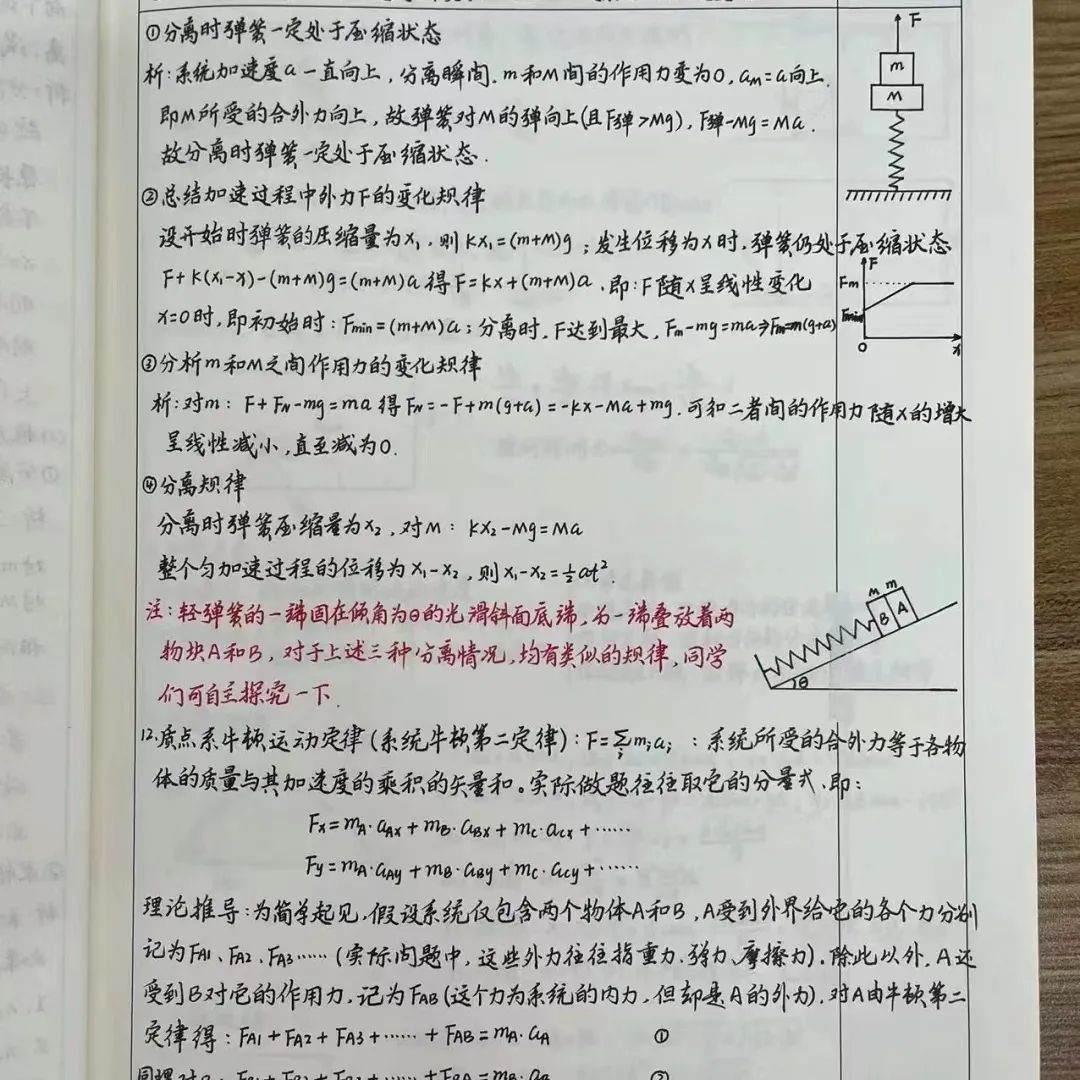 ①分离时弹簧一定处于压缩状态
析:系统加速度a一直向上，分离瞬间.m和M间的作用力变为0，aM=a向上.
即M所受的合外力向上，故弹簧对M的弹向上(且F弹>Mg)，F弹-Mg=Ma.
故分离时弹簧一定处于压缩状态.
F
m
M
②总结加速过程中外力F的变化规律
设开始时弹簧的压缩量为x₁，则kx₁=(m+M)g；发生位移为x时，弹簧仍处于压缩状态
F+k(x₁-x)-(m+M)g=(m+M)a得F=kx+(m+M)a.即:F随x呈线性变化
x=0时，即初始时:Fmin=(m+M)a；分离时，F达到最大，Fm-mg=ma⇒Fm=m(g+a)
F
Fm
Fmin
0
x
③分析m和M之间作用力的变化规律
析:对m: F+FN-mg=ma得FN=-F+m(g+a)=-kx-Ma+mg.可知二者间的作用力随x的增大
呈线性减小，直至减为0.
④分离规律
分离时弹簧压缩量为x₂，对M: kx₂-Mg=Ma
整个匀加速过程的位移为x₁-x₂，则x₁-x₂=½at².
注:轻弹簧的一端固在倾角为θ的光滑斜面底端，另一端叠放着两
物块A和B，对于上述三种分离情况，均有类似的规律，同学
们可自主探究一下.
M m
B A
θ
12.质点系牛顿运动定律(系统牛顿第二定律):F=∑miai :系统所受的合外力等于各物
体的质量与其加速度的乘积的矢量和。实际做题往往取它的分量式.即:
Fx=mA·aAx+mB·aBx+mC·aCx+……
Fy=mA·aAy+mB·aBy+mC·aCy+……
理论推导:为简单起见，假设系统仅包含两个物体A和B，A受到外界给它的各个力分别
记为FA1、FA2、FA3……(实际问题中，这些外力往往指重力.弹力、摩擦力).除此以外，A还
受到B对它的作用力，记为FAB(这个力为系统的内力，但却是A的外力).对A由牛顿第二
定律得:FA1+FA2+FA3+……+FAB=mA·aA ①